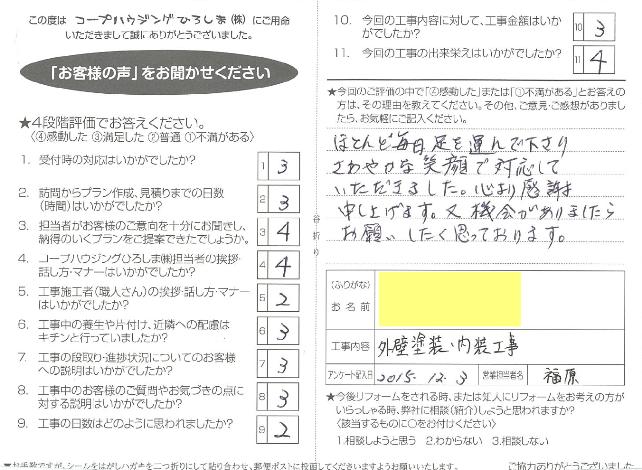 この度は コープハウジングひろしま(株) にご用命
いただきまして誠にありがとうございました。
「お客様の声」をお聞かせください
★4段階評価でお答えください。
〈④感動した ③満足した ②普通 ①不満がある〉
1. 受付時の対応はいかがでしたか? 1 3
2. 訪問からプラン作成、見積りまでの日数
(時間)はいかがでしたか? 2 3
3. 担当者がお客様のご意向を十分にお聞きし、
納得のいくプランをご提案できたでしょうか。 3 4
4. コープハウジングひろしま㈱担当者の挨拶・
話し方・マナーはいかがでしたか? 4 4
5. 工事施工者(職人さん)の挨拶・話し方・マナー
はいかがでしたか? 5 2
6. 工事中の養生や片付け、近隣への配慮は
キチンと行っていましたか? 6 3
7. 工事の段取り・進捗状況についてのお客様
への説明はいかがでしたか? 7 3
8. 工事中のお客様のご質問やお気づきの点に
対する説明はいかがでしたか? 8 3
9. 工事の日数はどのように思われましたか? 9 2
▼お手数ですが、シールをはがしハガキを二つ折りにして貼り合わせ、郵便ポストに投函してくださいますようお願いいたします。
谷折り
10. 今回の工事内容に対して、工事金額はいか
がでしたか? 10 3
11. 今回の工事の出来栄えはいかがでしたか? 11 4
★今回のご評価の中で「④感動した」または「①不満がある」とお答え
の方は、その理由を教えてください。その他、ご意見・ご感想がありまし
たら、お気軽にご記入ください。
ほとんど毎日足を運んで下さり
さわやかな笑顔で対応して
いただきました。心より感謝
申し上げます。又機会がありましたら
お願いしたく思っております。
(ふりがな)
お名前
工事内容 外壁塗装・内装工事
アンケート記入日 2015.12.3 営業担当者名 福原
★今後リフォームをされる時、または知人にリフォームをお考えの方が
いらっしゃる時、弊社に相談(紹介)しようと思われますか?
〈該当するものに○をお付けください〉
1.相談しようと思う 2.わからない 3.相談しない
ご協力ありがとうございました